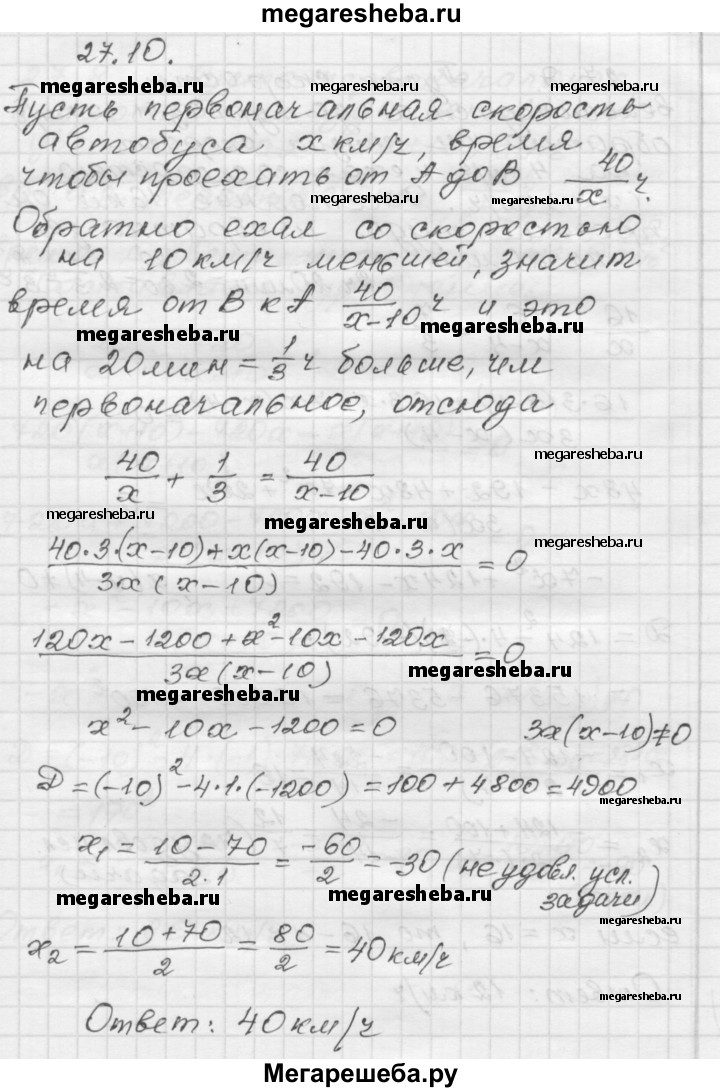 megaresheba.ru
27.10.
megaresheba.ru megaresheba.ru
Пусть первоначальная скорость
автобуса x км/ч, время
megaresheba.ru
чтобы проехать от A до B 40/x ч.
megaresheba.ru
Обратно ехал со скоростью
на 10 км/ч меньшей, значит
время от B к A 40/x-10 ч и это
megaresheba.ru megaresheba.ru
на 20 мин = 1/3 ч больше, чем
первоначальное, отсюда
megaresheba.ru
40/x + 1/3 = 40/x-10
megaresheba.ru megaresheba.ru
megaresheba.ru
40·3·(x-10)+x(x-10)-40·3·x / 3x(x-10) = 0
120x-1200+x²-10x-120x / 3x(x-10) = 0
megaresheba.ru
megaresheba.ru
x²-10x-1200=0 3x(x-10)≠0
D=(-10)²-4·1·(-1200)=100+4800=4900
megaresheba.ru
x₁ = 10-70/2·1 = -60/2 = -30 (не удовл. усл. задачи)
megaresheba.ru megaresheba.ru
megaresheba.ru
x₂ = 10+70/2 = 80/2 = 40 км/ч
megaresheba.ru
Ответ: 40 км/ч
Мегарешеба.ру